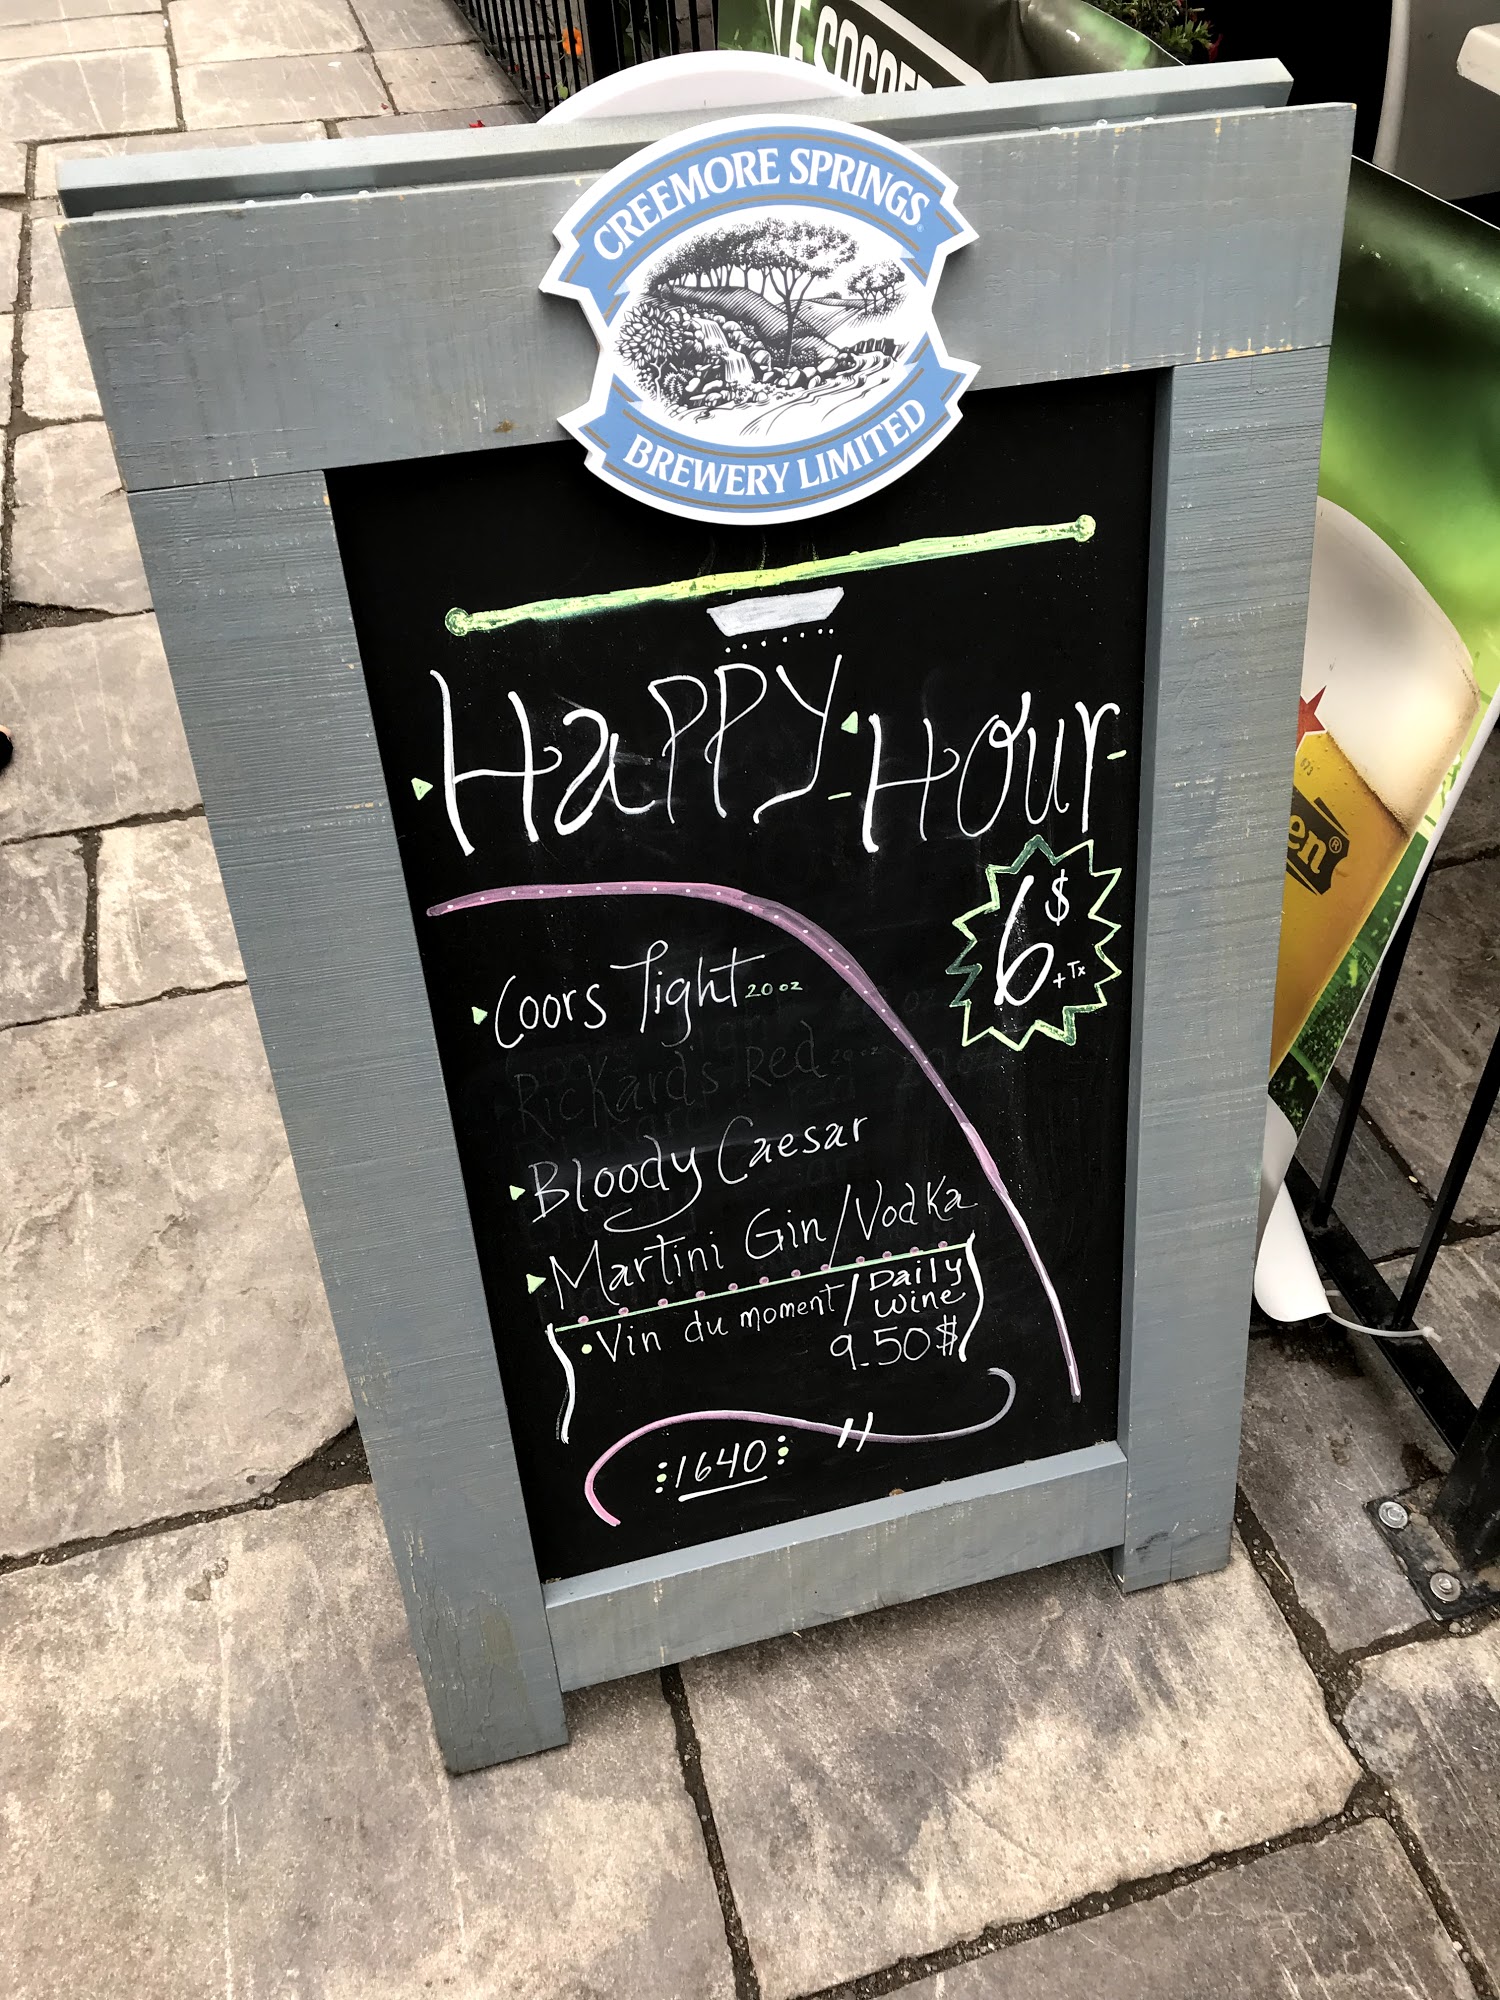 LE SOCCER
CREEMORE SPRINGS
BREWERY LIMITED
Happy Hour
6$
+Tx
Coors Light 20 oz
Rickard's Red 20 oz
Bloody Caesar
Martini Gin/Vodka
Vin du moment/Daily
wine
9.50$
1640
en®